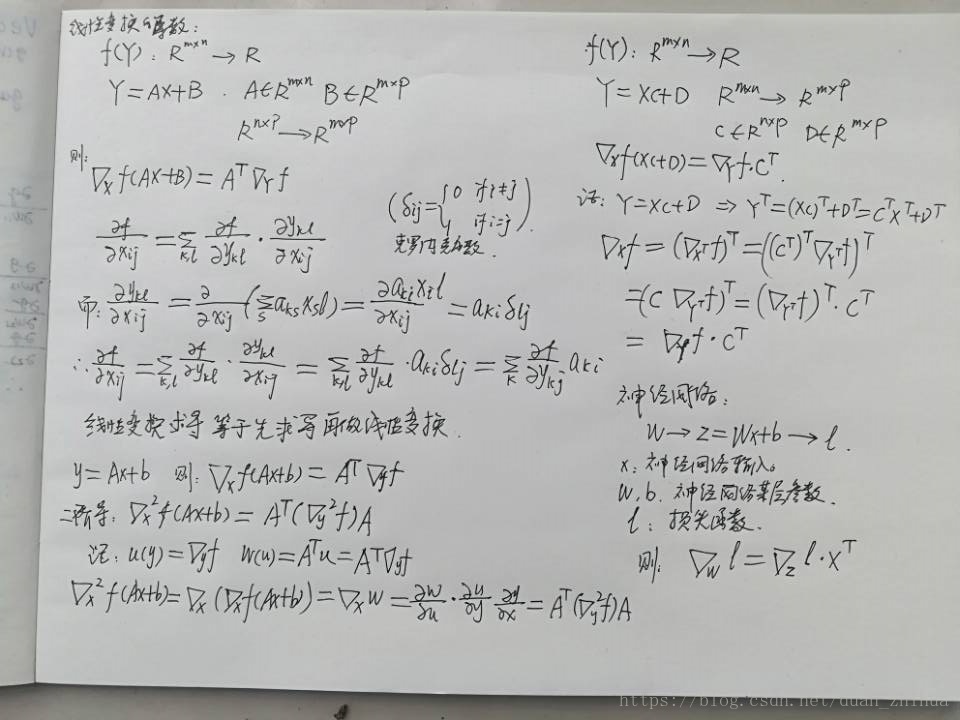 线性变换的导数:
f(Y): R^{m×n} → R
Y = AX+B . A∈R^{m×n} B∈R^{m×p}
R^{n×p} → R^{m×p}
则:
∇_X f(AX+B) = A^T ∇_Y f
(δij = {0 if i≠j, 1 if i=j}) .
克罗内克函数.
∂f/∂x_ij = Σ_{k,l} ∂f/∂y_kl · ∂y_kl/∂x_ij
而: ∂y_kl/∂x_ij = ∂/∂x_ij (Σ_s a_ks x_sl) = ∂a_ki x_il/∂x_ij = a_ki δ_lj
∴ ∂f/∂x_ij = Σ_{k,l} ∂f/∂y_kl · ∂y_kl/∂x_ij = Σ_{k,l} ∂f/∂y_kl · a_ki δ_lj = Σ_k ∂f/∂y_kj a_ki
线性变换求导等于先求导再做线性变换.
y = Ax+b 则: ∇_x f(Ax+b) = A^T ∇_y f
二阶导: ∇_x^2 f(Ax+b) = A^T(∇_y^2 f)A
记: u(y) = ∇_y f W(u) = A^T u = A^T ∇_y f
∇_x^2 f(Ax+b) = ∇_x(∇_x f(Ax+b)) = ∇_x W = ∂w/∂u · ∂u/∂y ∂y/∂x = A^T(∇_y^2 f)A
f(Y): R^{m×n} → R
Y = XC+D R^{m×n} → R^{m×p}
C∈R^{n×p} D∈R^{m×p}
∇_X f(XC+D) = ∇_Y f · C^T.
记: Y = XC+D ⇒ Y^T = (XC)^T + D^T = C^T X^T + D^T
∇_X f = (∇_{X^T} f)^T = ((C^T)^T ∇_{Y^T} f)^T
= (C ∇_{Y^T} f)^T = (∇_{Y^T} f)^T · C^T
= ∇_Y f · C^T
神经网络:
W → Z = Wx+b → l .
x: 神经网络输入。
W, b. 神经网络某层参数.
l: 损失函数.
则: ∇_W l = ∇_Z l · x^T
https://blog.csdn.net/duan_zhihua